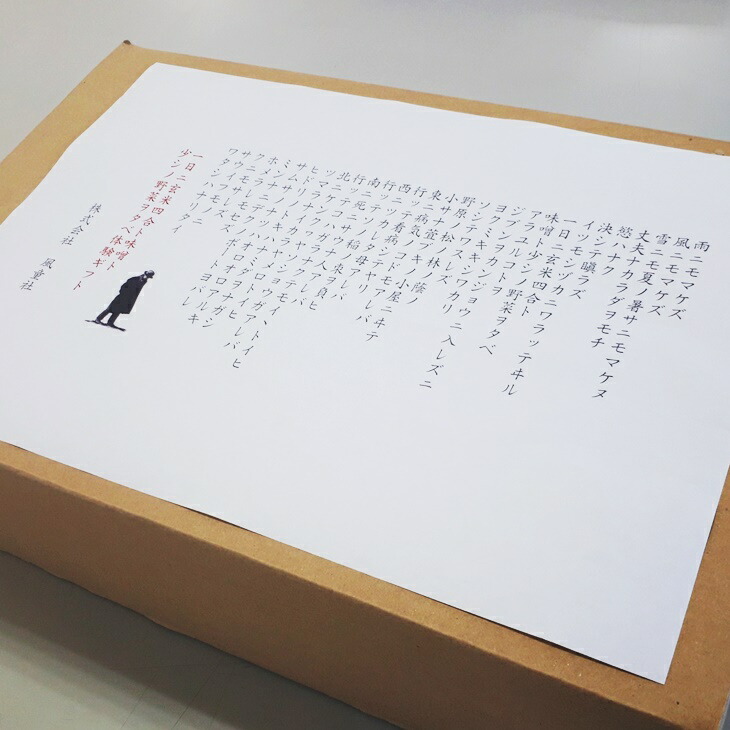 雨ニモマケズ
風ニモマケズ
雪ニモ夏ノ暑サニモマケヌ
丈夫ナカラダヲモチ
慾ハナク
決シテ瞋ラズ
イツモシヅカニワラッテヰル
一日ニ玄米四合ト
味噌ト少シノ野菜ヲタベ
アラユルコトヲ
ジブンヲカンジョウニ入レズニ
ヨクミキキシワカリ
ソシテワスレズ
野原ノ松ノ林ノ蔭ノ
小サナ萱ブキノ小屋ニヰテ
東ニ病気ノコドモアレバ
行ッテ看病シテヤリ
西ニツカレタ母アレバ
行ッテソノ稲ノ束ヲ負ヒ
南ニ死ニサウナ人アレバ
行ッテコハガラナクテモイヽトイヒ
北ニケンクヮヤソショウガアレバ
ツマラナイカラヤメロトイヒ
ヒドリノトキハナミダヲナガシ
サムサノナツハオロオロアルキ
ミンナニデクノボートヨバレ
ホメラレモセズ
クニモサレズ
サウイフモノニ
ワタシハナリタイ
一日ニ玄米四合ト味噌ト
少シノ野菜ヲタベ体験ギフト
株式会社 風童社